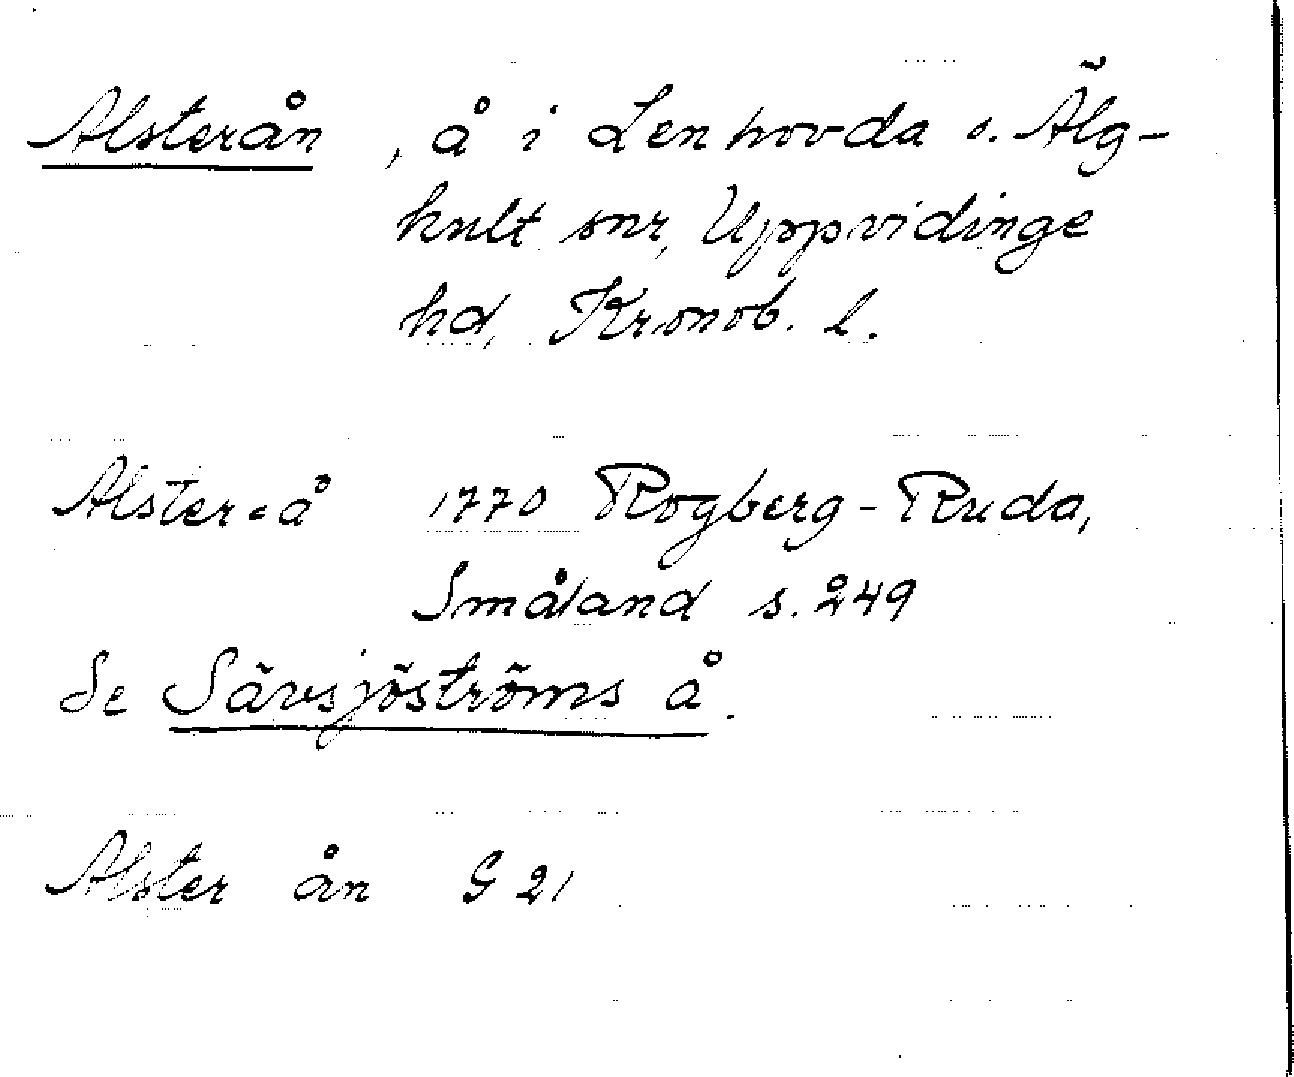 Alsterån , å i Lenhovda o. Älg-
hult snr, Uppvidinge
hd, Kronob. l.
Alster=å 1770 Rogberg-Ruda,
Småland s. 249
Se Sävsjöströms å.
Alster ån G 21